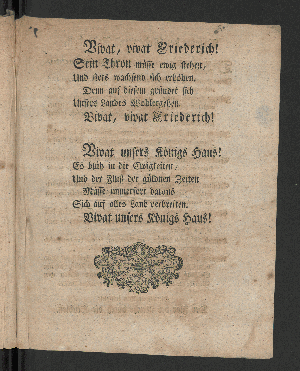 Vivat, vivat Friederich!
Sein Thron müsse ewig stehen,
Und stets wachsend sich erhöhen,
Denn auf diesem gründet sich
Unsers Landes Wohlergehen.
Vivat, vivat Friederich!
Vivat unsers Königs Haus!
Es blüh in die Ewigkeiten,
Und der Fluß der güldnen Zeiten
Müsse immerfort daraus
Sich auf alles Land verbreiten.
Vivat unsers Königs Haus!